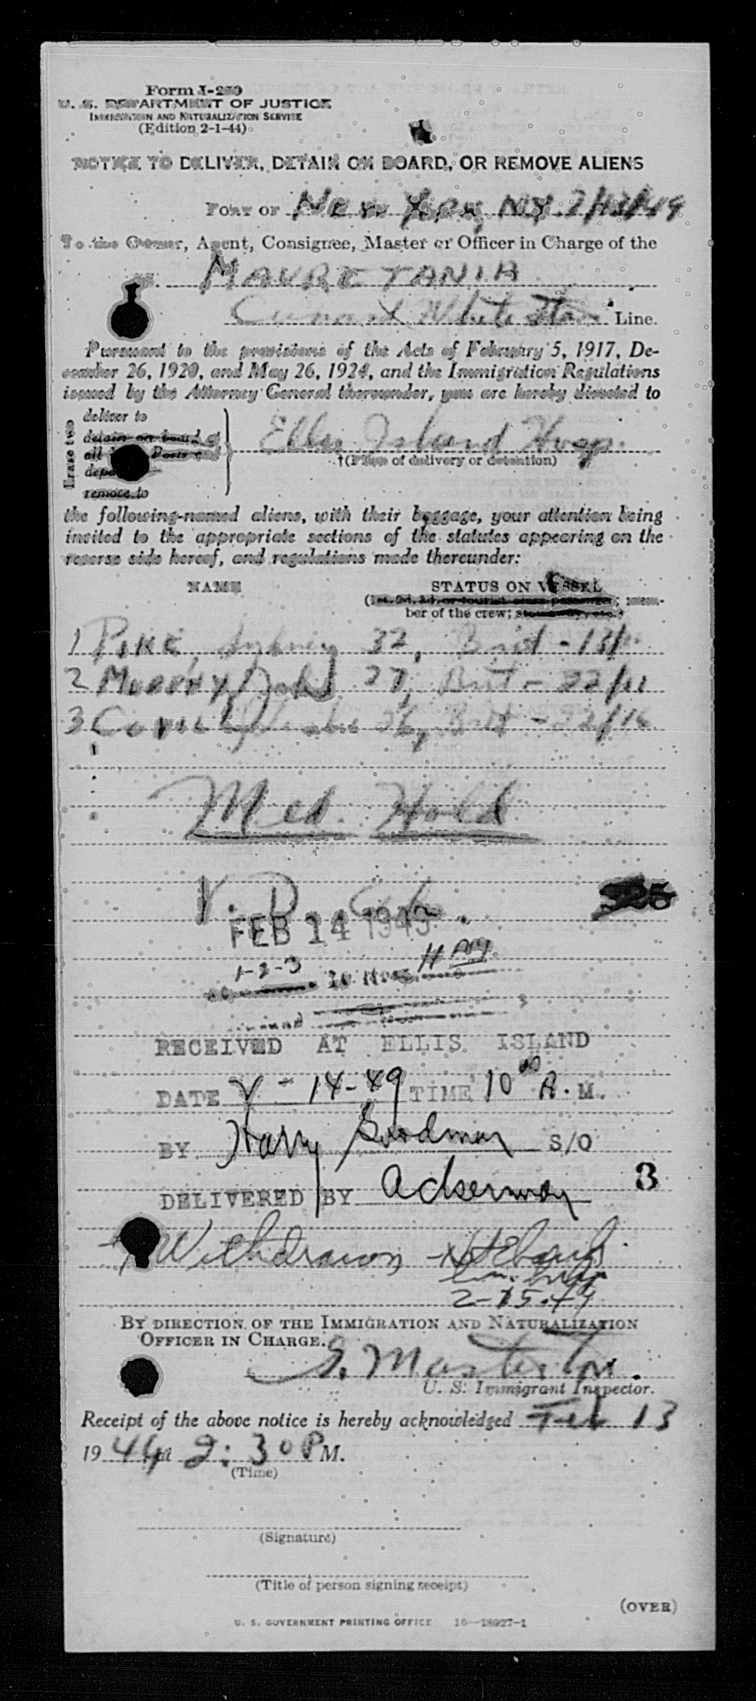 Form I-259
U. S. DEPARTMENT OF JUSTICE
IMMIGRATION AND NATURALIZATION SERVICE
(Edition 2-1-44)
NOTICE TO DELIVER, DETAIN ON BOARD, OR REMOVE ALIENS
PORT OF New York, NY. 2/13/49
To the Owner, Agent, Consignee, Master or Officer in Charge of the
MAURETANIA
Cunard White Star Line.
Pursuant to the provisions of the Acts of February 5, 1917, De-
cember 26, 1920, and May 26, 1924, and the Immigration Regulations
issued by the Attorney General thereunder, you are hereby directed to
deliver to
detain on board
Erase two
remove to
Ellis Island Hosp.
†(Place of delivery or detention)
the following-named aliens, with their baggage, your attention being
invited to the appropriate sections of the statutes appearing on the
reverse side hereof, and regulations made thereunder:
NAME STATUS ON VESSEL
(1st, 2d, 3d, or tourist class passenger; mem-
ber of the crew; stowaway, etc.)
1 PIKE, Sydney 32, Brit - 13/
2 MURPHY, John 27, Brit - 22/11
3 Leslie 26, Brit - 22/16
Med. Hold
V. D.
325
FEB 14 1949
1-2-3
RECEIVED AT ELLIS ISLAND
DATE 2-14-49 TIME 10 00 A.M.
BY Harry Goodman S/O
DELIVERED BY Ackerman
3
Withdrawn
2-15-49
BY DIRECTION OF THE IMMIGRATION AND NATURALIZATION
OFFICER IN CHARGE.
S. Masterton.
U. S. Immigrant Inspector.
Receipt of the above notice is hereby acknowledged Feb 13
19 at 2:30 P M.
(Time)
(Signature)
(Title of person signing receipt)
(OVER)
U. S. GOVERNMENT PRINTING OFFICE 16—18927-1